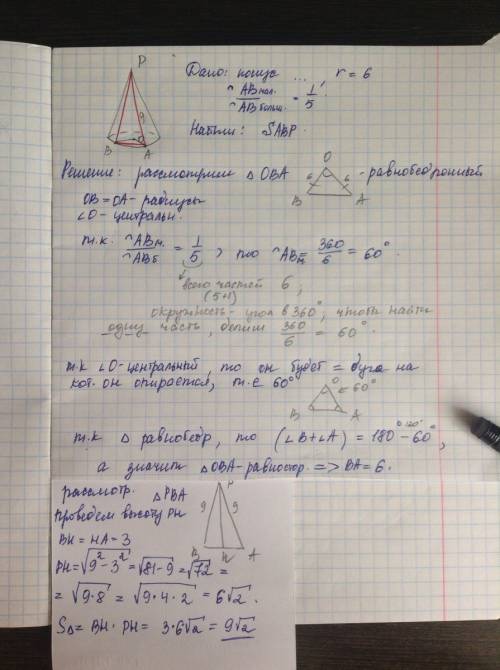 P
9
B
O
A
Дано: конус ..., r = 6
◠AB мал. / ◠AB больш. = 1/5
Найти: SABP.
Решение: рассмотрим △OBA
O
6 6
B A
- равнобедренный
OB = OA - радиусы
∠O - централън.
т.к. ◠ABм. / ◠ABб = 1/5, то ◠ABм = 360/6 = 60°.
всего частей 6;
(5+1)
окружность - угол в 360°, чтобы найти
одну часть, делим 360/6 = 60°.
т.к ∠O - центральный, то он будет = дуга на
кот. он опирается, т.е 60°
O 60°
B A
т.к △ равнобедр, то (∠B+∠A) = 180° - 60°,
120°
а значит △OBA - равностор. => BA = 6.
рассмотр. △PBA
Проведем высоту PH
P
9 9
B H A
BH = HA = 3
PH = √9² - 3² = √81 - 9 = √72 =
= √9·8 = √9·4·2 = 6√2.
S△ = BH · PH = 3·6√2 = 9√2